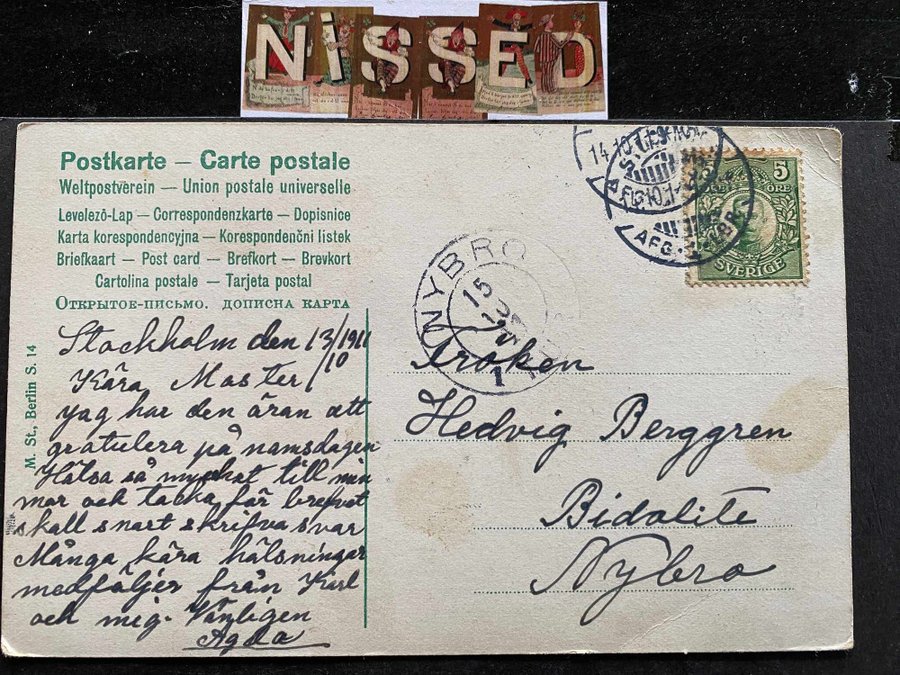 NiSSED
Postkarte — Carte postale
Weltpostverein — Union postale universelle
Levelező-Lap — Correspondenzkarte — Dopisnice
Karta korespondencyjna — Korespondenční listek
Briefkaart — Post card — Brefkort — Brevkort
Cartolina postale — Tarjeta postal
Открытое-письмо. дописна карта
M. St., Berlin S. 14
Stockholm den 13/10 1911
Kära Moster
yag har den äran att
gratulera på namsdagen
Hälsa så mychet till min
mor och tacka för brevet
skall snart skrifva svar
Många kära hälsningar
medföljer från Karl
och mig. Vänligen
Agda
5
ÖRE
SVERIGE
14.10.11
AFG.
NYBRO
15
10
1
Fröken
Hedvig Berggren
Bidalite
Nybro